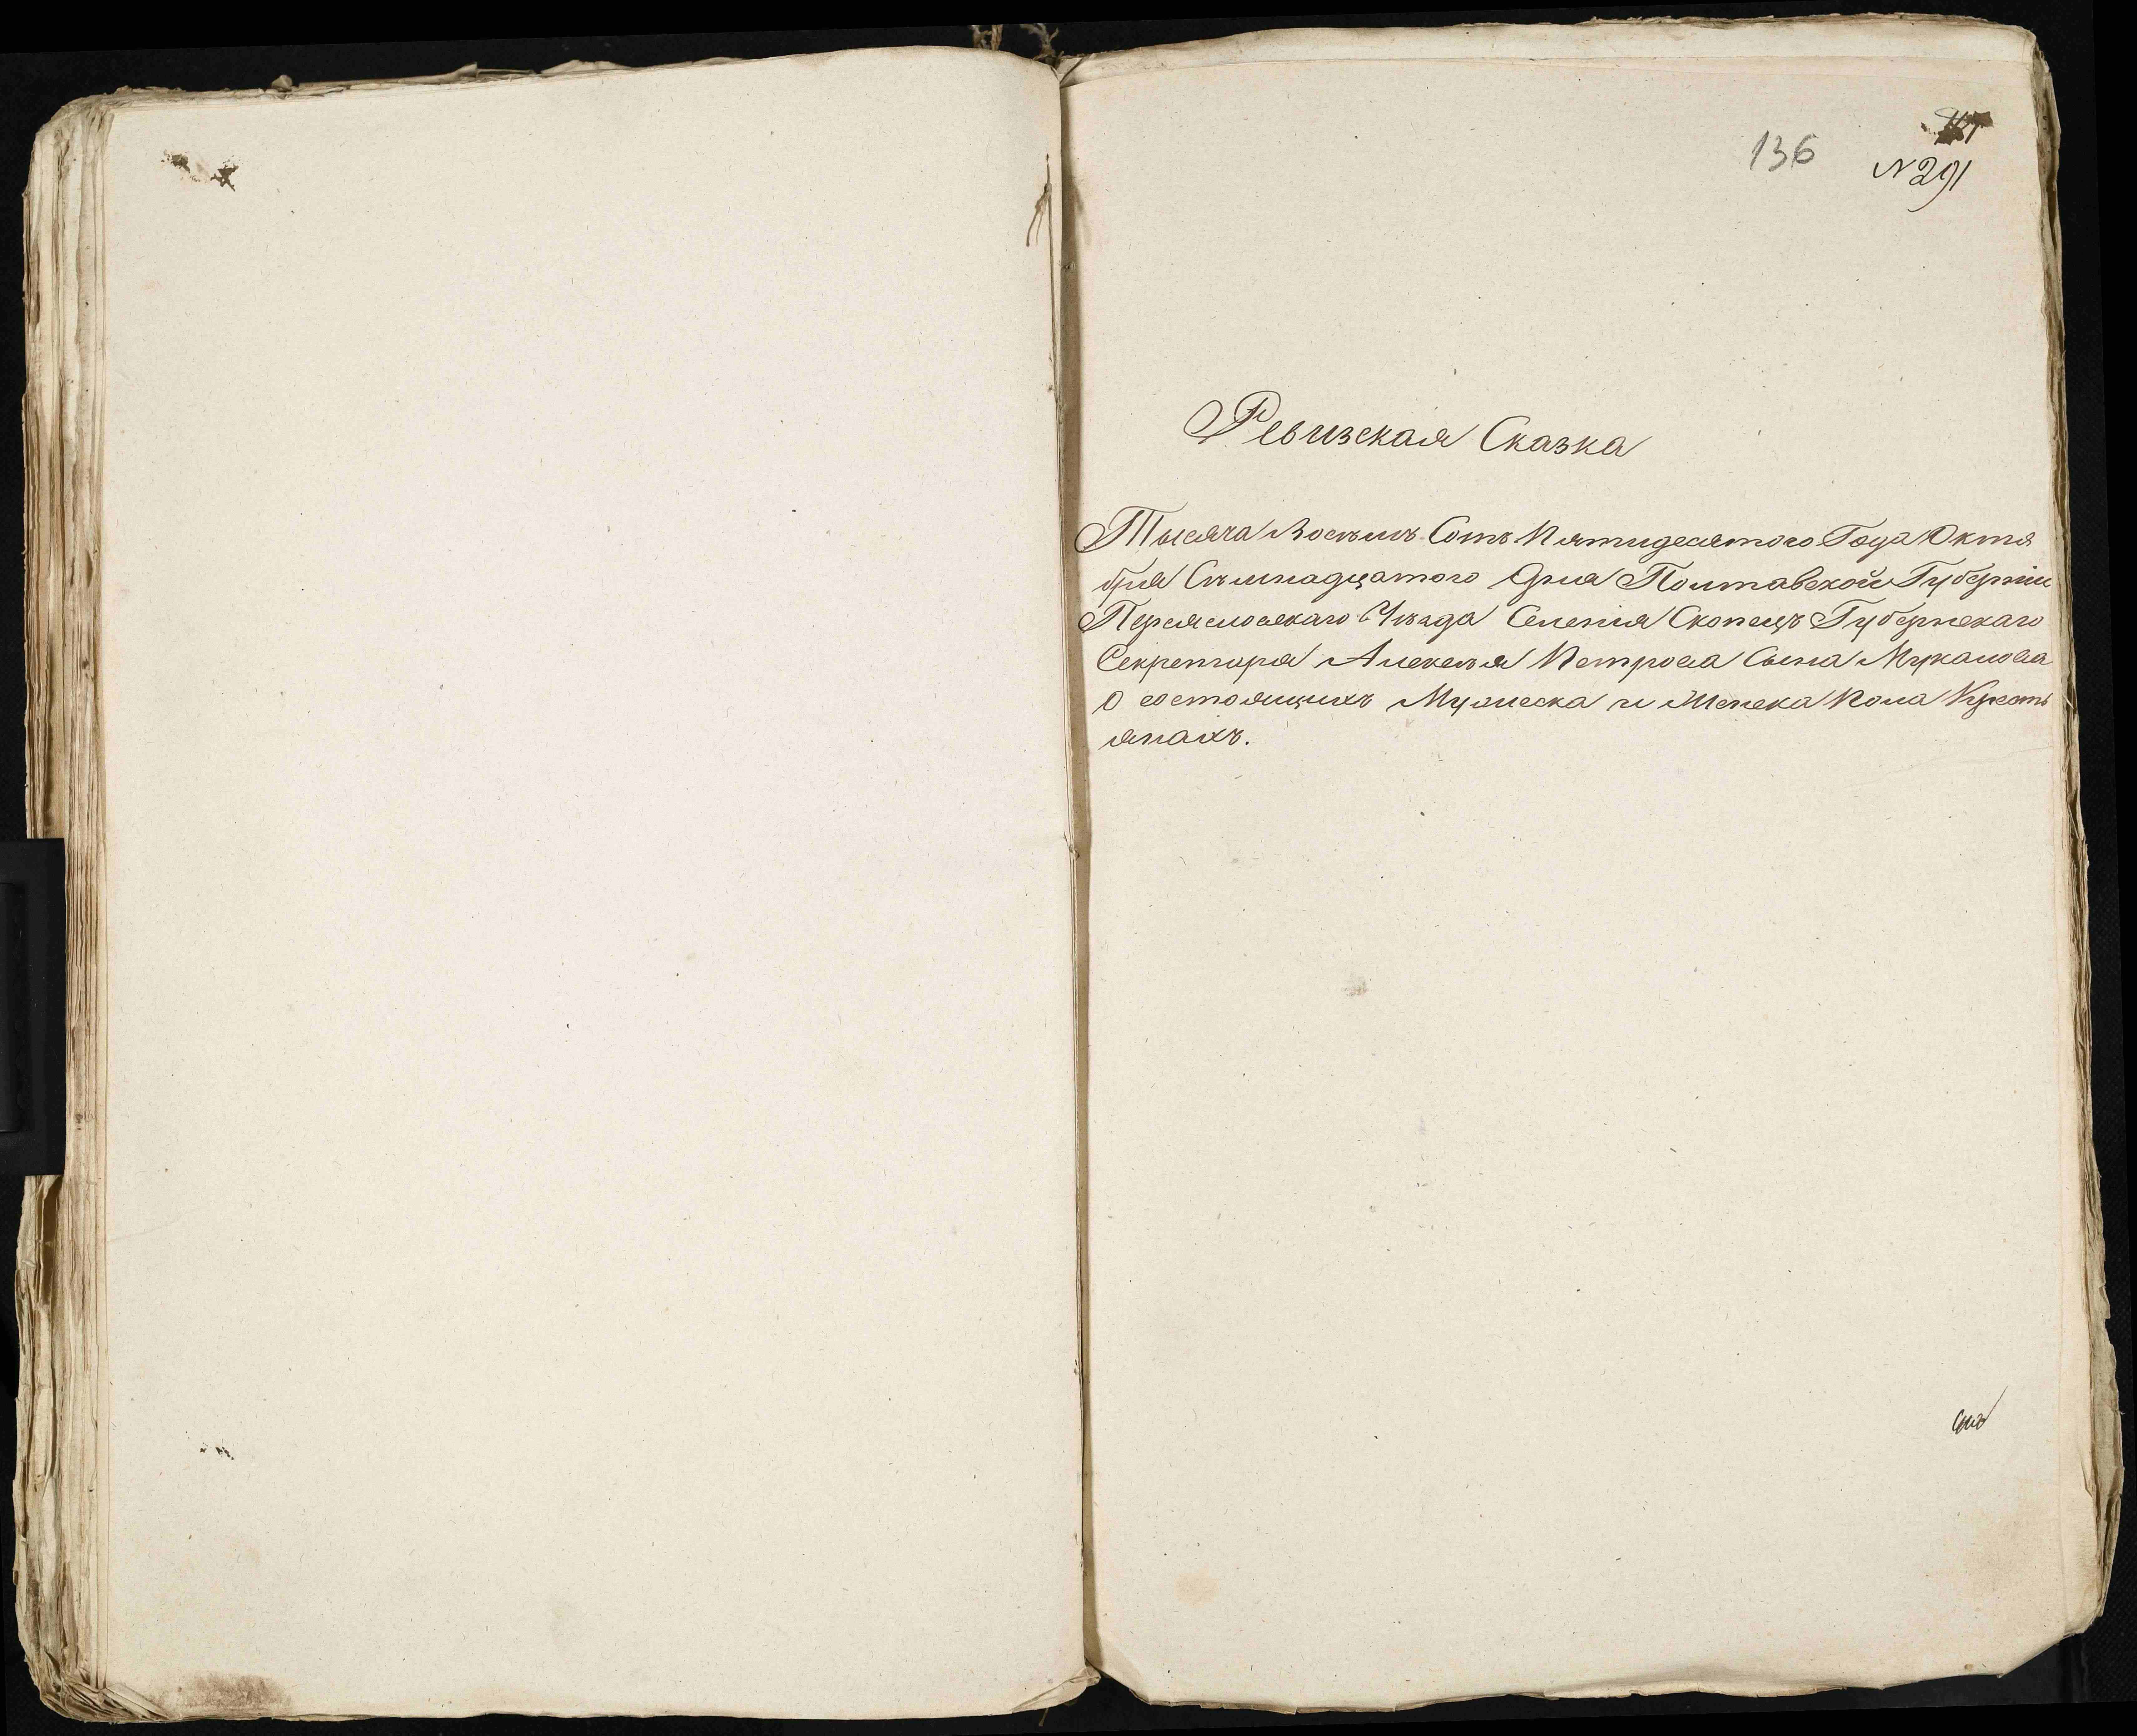 136
N 291
Ревизская Сказка
Тысяча Восемь Сотъ Пятидесятого Года Октя
бря Съмнадцатого Дня Полтавской Губерніи
Переяславскаго Уѣзда Селенія Скопецъ Губернскаго
Секретаря Алексѣя Петрова Сына
О состоящихъ Мужеска и Женска Пола Кресть
янахъ.